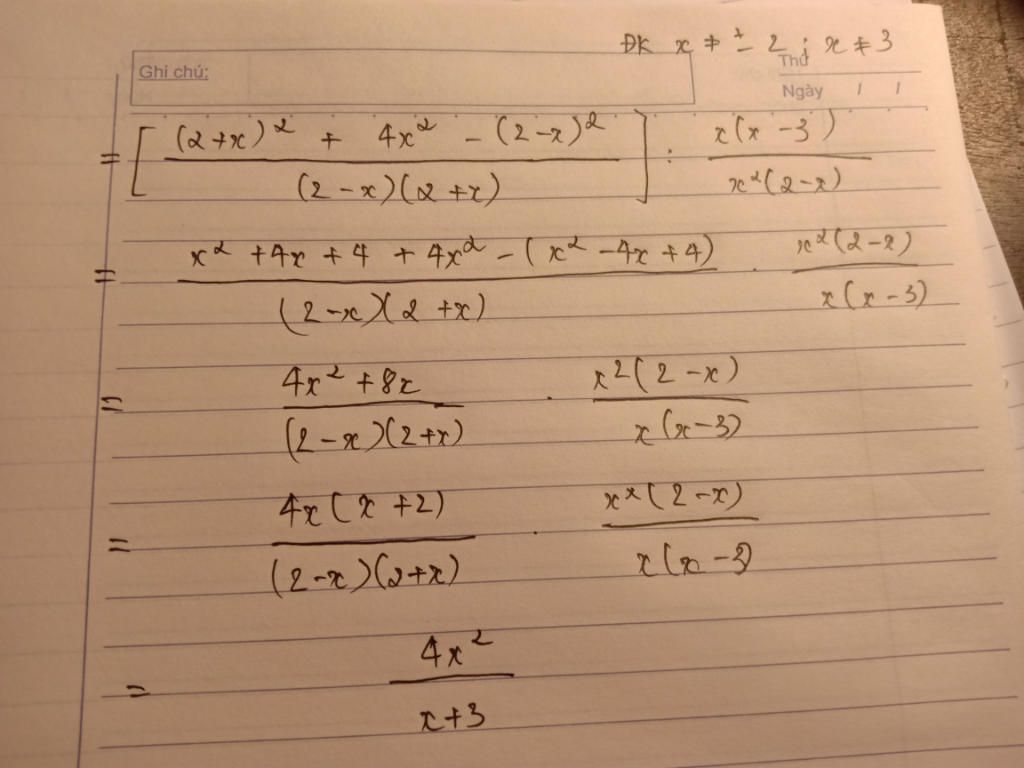 ĐK x ≠ ± 2 ; x ≠ 3
Ghi chú:
Thứ
Ngày / /
= [ ((2+x)² + 4x² - (2-x)²) / ((2-x)(2+x)) ] : (x(x-3)) / (x²(2-x))
= (x² + 4x + 4 + 4x² - (x² - 4x + 4)) / ((2-x)(2+x)) . (x²(2-x)) / (x(x-3))
= (4x² + 8x) / ((2-x)(2+x)) . (x²(2-x)) / (x(x-3))
= (4x(x+2)) / ((2-x)(2+x)) . (xˣ(2-x)) / (x(x-3))
= (4x²) / (x+3)